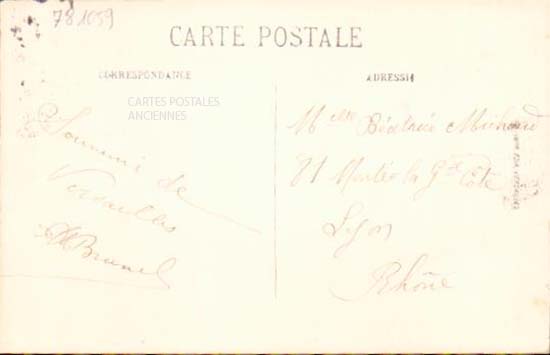 781059
CARTE POSTALE
CORRESPONDANCE
ADRESSE
CARTES POSTALES
ANCIENNES
Souvenir de
Versailles
Brunel
Melle Béatrice Michaud
81 Montée de la Gde Côte
Lyon
Rhône